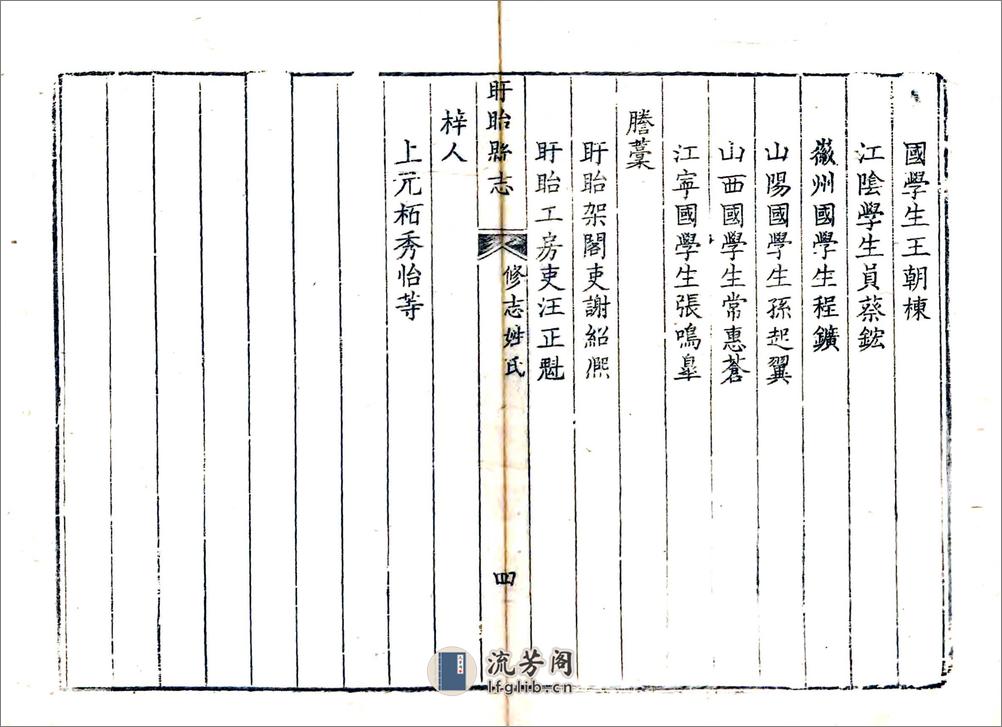 國學生王朝棟
江陰學生員蔡鋐
徽州國學生程鑛
山陽國學生孫起翼
山西國學生常惠蒼
江寧國學生張鳴臯
謄藁
盱眙架閣吏謝紹熈
盱眙工房吏汪正魁
盱眙縣志
修志姓氏
四
梓人
上元栢秀怡等
流芳阁
lfglib.cn